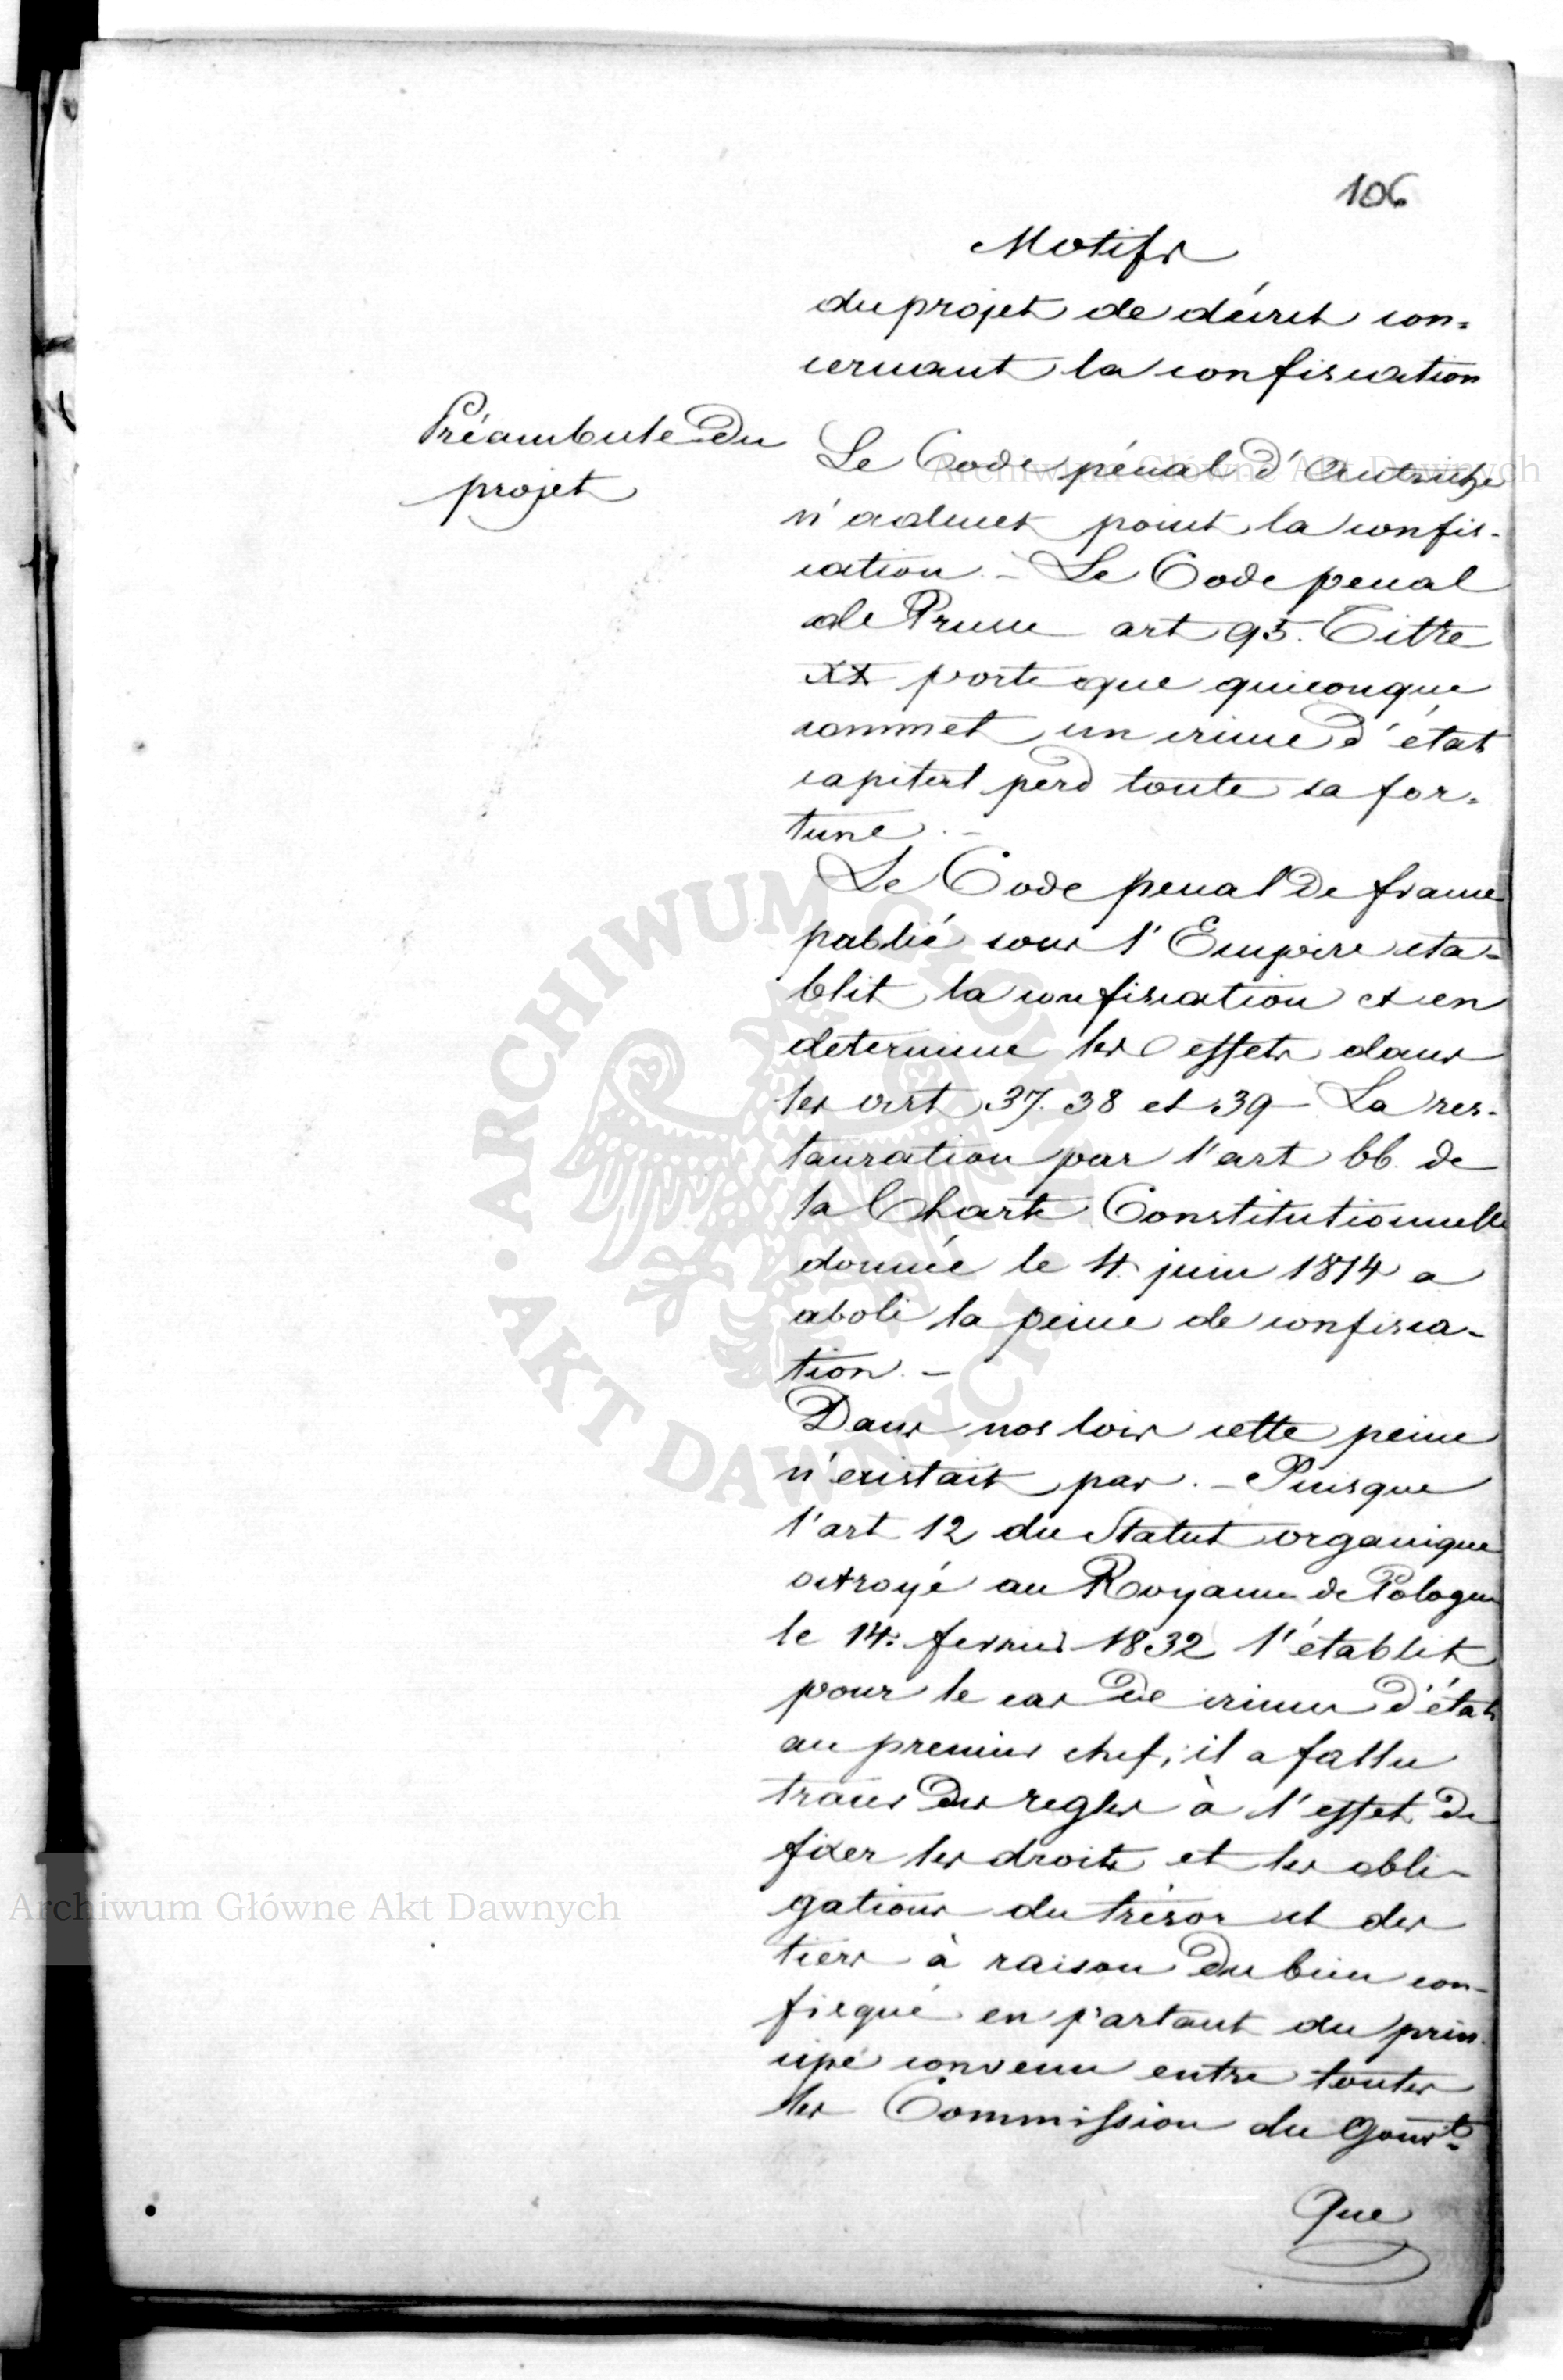 106
Motifs
du projet de décret con=
cernant la confiscation
Préambule du
projet
Le Code pénal d'Autriche
n'admet point la confis-
cation. - Le Code penal
de Prusse art 95. Titre
XX porte que quiconque
commet un crime d'état
capital perd toute sa for=
tune. -
Le Code penal de france
publié sous l'Empire eta=
blit la confiscation et en
determine les effets dans
les art 37. 38 et 39 - La res-
tauration par l'art 66. de
la Charte Constitutionnelle
donnée le 4. juin 1814 a
aboli la peine de confisca-
tion. -
Dans nos lois cette peine
n'existait pas. - Puisque
l'art 12 du Statut organique
octroyé au Royaume de Pologne
le 14: fevrier 1832 l'établit
pour le cas de crimes d'état
au premier chef; il a fallu
tracer des regles à l'effet de
fixer les droits et les obli-
gations du trésor et des
tiers à raison du bien con-
fisqué en partant du prin-
cipe convenu entre toutes
les Commission du Gouvt=
Que
Archiwum Główne Akt Dawnych
Archiwum Główne Akt Dawnych
ARCHIWUM GŁÓWNE · AKT DAWNYCH ·